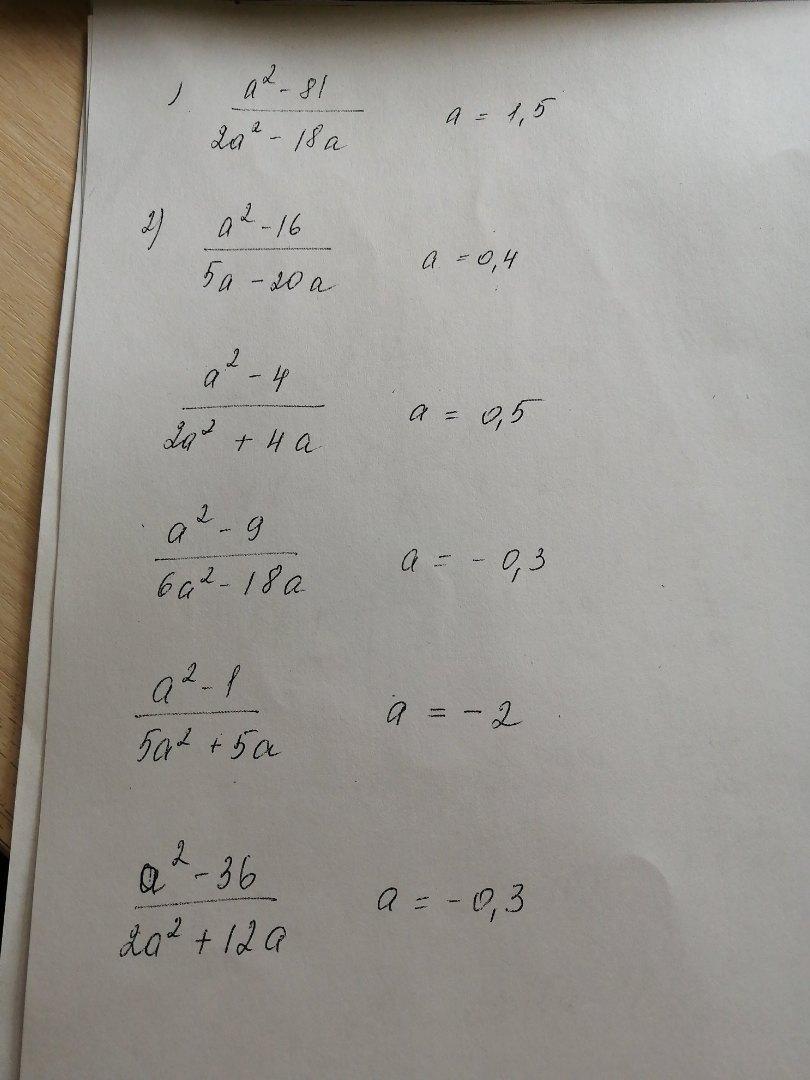 1) (a² - 81) / (2a² - 18a)    a = 1,5
2) (a² - 16) / (5a - 20a)    a = 0,4
(a² - 4) / (2a² + 4a)    a = 0,5
(a² - 9) / (6a² - 18a)    a = - 0,3
(a² - 1) / (5a² + 5a)    a = - 2
(a² - 36) / (2a² + 12a)    a = - 0,3